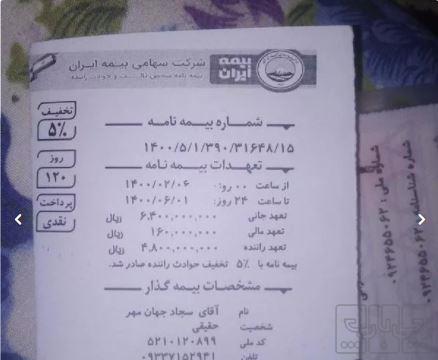 شرکت سهامی بیمه ایران
بیمه ایران
بیمه نامه شخص ثالث و حوادث راننده
تخفیف
۵٪
روز
۱۲۰
پرداخت
نقدی
شماره بیمه نامه
۱۴۰۰/۵/۱/۳۹۰/۳۱۶۴۸/۱۵
تعهدات بیمه نامه
از ساعت ۰۰ روز: ۱۴۰۰/۰۲/۰۶
تا ساعت ۲۴ روز: ۱۴۰۰/۰۶/۰۱
تعهد جانی ۶.۴۰۰,۰۰۰,۰۰۰ ریال
تعهد مالی ۱۶۰,۰۰۰,۰۰۰ ریال
تعهد راننده ۴.۸۰۰,۰۰۰,۰۰۰ ریال
بیمه نامه با ۵٪ تخفیف حوادث راننده صادر شد.
مشخصات بیمه گذار
نام آقای سجاد جهان مهر
شخصیت حقیقی
کد ملی ۵۲۱۰۱۲۰۸۹۹
تلفن ۰۹۳۳۷۱۵۲۹۴۱
شماره ملی: ۰۹۲۴۶۵۵۰۶۲
شماره شناسنامه: ۰۹۲۴۶۵۵۰۶۲